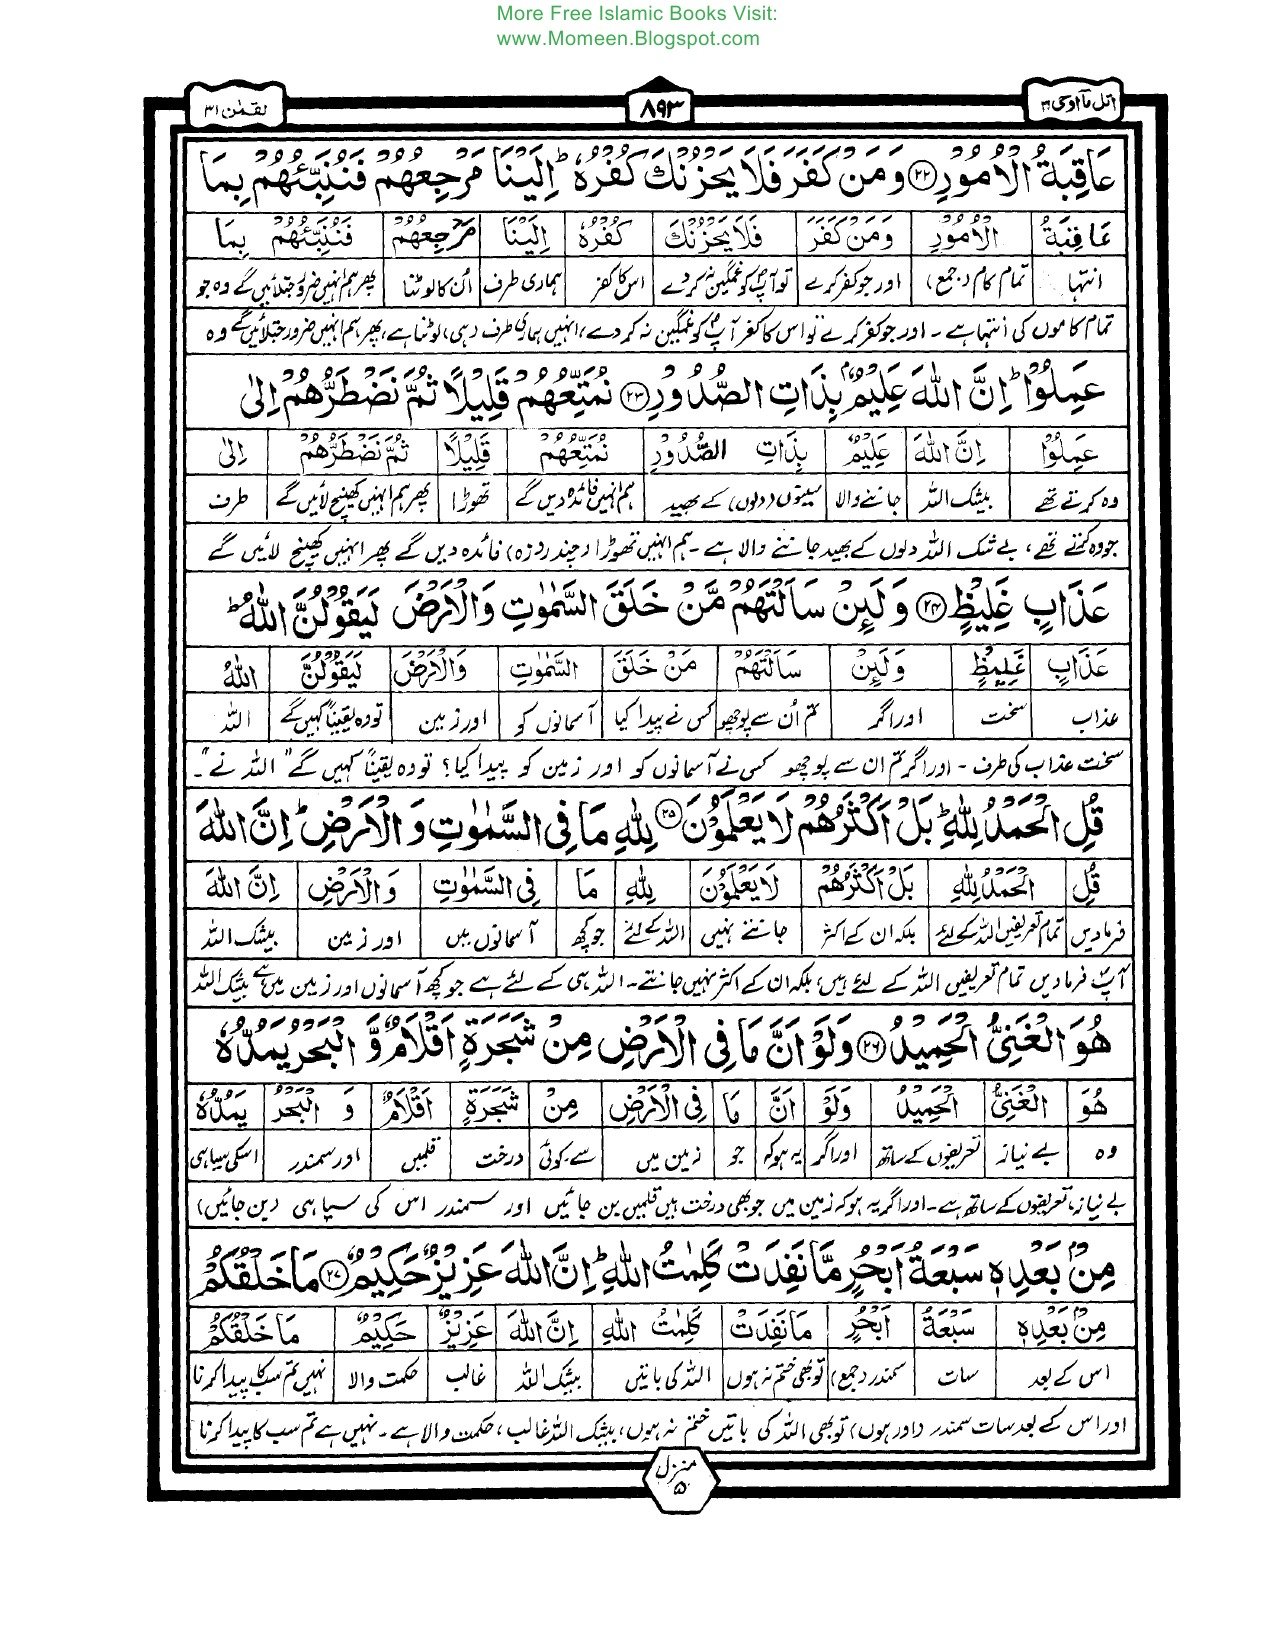 More Free Islamic Books Visit:
www.Momeen.Blogspot.com
اتل مآ اوحی ۲۱
۸۹۳
لقمٰن ۳۱
عَاقِبَةُ الْاُمُوْرِ ۲۲ وَمَنْ كَفَرَ فَلَا يَحْزُنْكَ كُفْرُهٗ ؕ اِلَيْنَا مَرْجِعُهُمْ فَنُنَبِّئُهُمْ بِمَا
عَاقِبَةُ الْاُمُوْرِ وَمَنْ كَفَرَ فَلَا يَحْزُنْكَ كُفْرُهٗ اِلَيْنَا مَرْجِعُهُمْ فَنُنَبِّئُهُمْ بِمَا
انتہا تمام کام (جمع) اور جو کفر کرے تو آپؐ کو غمگین نہ کردے اس کا کفر ہماری طرف اُن کا لوٹنا پھر ہم انہیں ضرور جتلائیں گے وہ جو
تمام کاموں کی انتہا ہے ۔ اور جو کفر کرے تو اس کا کفر آپؐ کو غمگین نہ کر دے، انہیں ہماری طرف (ہی) لوٹنا ہے، پھر ہم انہیں ضرور جتلائیں گے وہ
عَمِلُوْا ؕ اِنَّ اللّٰهَ عَلِيْمٌۢ بِذَاتِ الصُّدُوْرِ ۲۳ نُمَتِّعُهُمْ قَلِيْلًا ثُمَّ نَضْطَرُّهُمْ اِلٰى
عَمِلُوْا اِنَّ اللّٰهَ عَلِيْمٌ بِذَاتِ الصُّدُوْرِ نُمَتِّعُهُمْ قَلِيْلًا ثُمَّ نَضْطَرُّهُمْ اِلٰى
وہ کرتے تھے بیشک اللہ جاننے والا سینوں (دلوں) کے بھید ہم انہیں فائدہ دیں گے تھوڑا پھر ہم انہیں کھینچ لائیں گے طرف
جو وہ کرتے تھے، بے شک اللہ دلوں کے بھید جاننے والا ہے ۔ ہم انہیں تھوڑا (چند روزہ) فائدہ دیں گے پھر انہیں کھینچ لائیں گے
عَذَابٍ غَلِيْظٍ ۲۴ وَلَئِنْ سَاَلْتَهُمْ مَّنْ خَلَقَ السَّمٰوٰتِ وَالْاَرْضَ لَيَقُوْلُنَّ اللّٰهُ ؕ
عَذَابٍ غَلِيْظٍ وَلَئِنْ سَاَلْتَهُمْ مَنْ خَلَقَ السَّمٰوٰتِ وَالْاَرْضَ لَيَقُوْلُنَّ اللّٰهُ
عذاب سخت اور اگر تم اُن سے پوچھو کس نے پیدا کیا آسمانوں کو اور زمین تو وہ یقیناً کہیں گے اللہ
سخت عذاب کی طرف ۔ اور اگر تم ان سے پوچھو کس نے آسمانوں کو اور زمین کو پیدا کیا؟ تو وہ یقیناً کہیں گے "اللہ نے"۔
قُلِ الْحَمْدُ لِلّٰهِ ؕ بَلْ اَكْثَرُهُمْ لَا يَعْلَمُوْنَ ۲۵ لِلّٰهِ مَا فِى السَّمٰوٰتِ وَالْاَرْضِ ؕ اِنَّ اللّٰهَ
قُلِ الْحَمْدُ لِلّٰهِ بَلْ اَكْثَرُهُمْ لَا يَعْلَمُوْنَ لِلّٰهِ مَا فِى السَّمٰوٰتِ وَالْاَرْضِ اِنَّ اللّٰهَ
فرمادیں تمام تعریفیں اللہ کے لئے بلکہ ان کے اکثر جانتے نہیں اللہ کے لئے جو کچھ آسمانوں میں اور زمین بیشک اللہ
آپؐ فرما دیں تمام تعریفیں اللہ کے لئے ہیں، بلکہ ان کے اکثر نہیں جانتے ۔ اللہ ہی کے لئے ہے جو کچھ آسمانوں اور زمین میں ہے بیشک اللہ
هُوَ الْغَنِىُّ الْحَمِيْدُ ۲۶ وَلَوْ اَنَّ مَا فِى الْاَرْضِ مِنْ شَجَرَةٍ اَقْلَامٌ وَّ الْبَحْرُ يَمُدُّهٗ
هُوَ الْغَنِىُّ الْحَمِيْدُ وَلَوْ اَنَّ مَا فِى الْاَرْضِ مِنْ شَجَرَةٍ اَقْلَامٌ وَ الْبَحْرُ يَمُدُّهٗ
وہ بے نیاز تعریفوں کے ساتھ اور اگر یہ ہو کہ جو زمین میں سے ۔ کوئی درخت قلمیں اور سمندر اسکی سیاہی
بے نیاز، تعریفوں کے ساتھ ہے ۔ اور اگر یہ ہو کہ زمین میں جو بھی درخت ہیں قلمیں بن جائیں اور سمندر اس کی سیاہی (بن جائیں)
مِنْۢ بَعْدِهٖ سَبْعَةُ اَبْحُرٍ مَّا نَفِدَتْ كَلِمٰتُ اللّٰهِ ؕ اِنَّ اللّٰهَ عَزِيْزٌ حَكِيْمٌ ۲۷ مَا خَلْقُكُمْ
مِنْۢ بَعْدِهٖ سَبْعَةُ اَبْحُرٍ مَا نَفِدَتْ كَلِمٰتُ اللّٰهِ اِنَّ اللّٰهَ عَزِيْزٌ حَكِيْمٌ مَا خَلْقُكُمْ
اس کے بعد سات سمندر (جمع) تو بھی ختم نہ ہوں اللہ کی باتیں بیشک اللہ غالب حکمت والا نہیں تم سب کا پیدا کرنا
اور اس کے بعد سات سمندر (اور ہوں) تو بھی اللہ کی باتیں ختم نہ ہوں، بیشک اللہ غالب، حکمت والا ہے ۔ نہیں ہے تم سب کا پیدا کرنا
منزل ۵